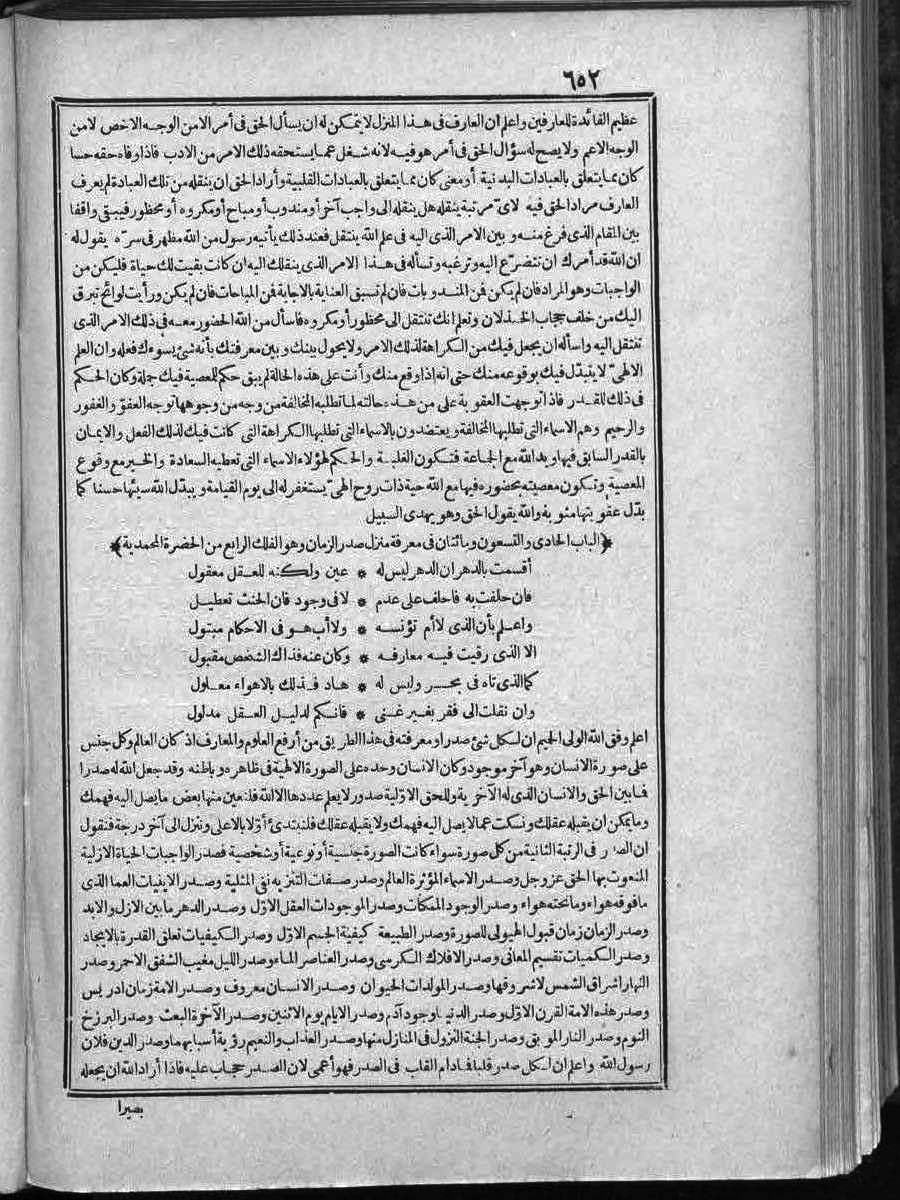 ٦٥٢
عظيم الفائدة للعارفين واعلم ان العارف فى هذا المنزل لا يتمكن له ان يسأل الحق فى أمر الا من الوجه الاخص لا من
الوجه الاعم ولا يصح له سؤال الحق فى أمر هو فيه لانه شغل عما يستحقه ذلك الامر من الادب فاذا وفاه حقه حسا
كان مما يتعلق بالعبادات البدنية أو معنى كان مما يتعلق بالعبادات القلبية وأراد الحق ان ينقله من تلك العبادة لم يعرف
العارف مراد الحق فيه لاى مرتبة ينقله هل ينقله الى واجب آخر أو مندوب أو مباح أو مكروه أو محظور فيبقى واقفا
بين المقام الذى فرغ منه و بين الامر الذى اليه فى علم الله ينتقل فعند ذلك يأتيه رسول من الله مظهر فى سرّه يقول له
ان الله قد أمرك ان تتضرّع اليه وترغبه وتسأله فى هذا الامر الذى ينقلك اليه ان كانت بقيت لك حياة فليكن من
الواجبات وهو المراد فان لم يكن فمن المندوبات فان لم تسبق العناية بالاجابة فمن المباحات فان لم يكن ورأيت لوائح تبرق
اليك من خلف حجاب الخذلان وتعلم انك تنتقل الى محظور أو مكروه فاسأل من الله الحضور معه فى ذلك الامر الذى
تنتقل اليه واسأله ان يجعل فيك من الكراهة لذلك الامر ولا يحول بينك وبين معرفتك بأنه شئ يسوءك فعله وان العلم
الالهىّ لا يتبدّل فيك بوقوعه منك حتى انه اذا وقع منك وأنت على هذه الحالة لم يبق حكم للمعصية فيك جملة وكان الحكم
فى ذلك للقدر فاذا توجهت العقوبة على من هذه حالته لما تطلبه المخالفة من وجه من وجوهها توجه العفوّ والغفور
والرحيم وهم الاسماء التى تطلبها المخالفة ويعتضدون بالاسماء التى تطلبها الكراهة التى كانت فيك لذلك الفعل والايمان
بالقدر السابق فيها ويد الله مع الجماعة فتكون الغلبة والحكم لهؤلاء الاسماء التى تعطيه السعادة والخير مع وقوع
المعصية وتكون معصيته بحضوره فيها مع الله حية ذات روح الهىّ يستغفر له الى يوم القيامة ويبدّل الله سيئها حسنا كما
بدّل عقوبتها مثوبة والله يقول الحق وهو يهدى السبيل
﴿الباب الحادى والتسعون ومائتان فى معرفة منزل صدر الزمان وهو الفلك الرابع من الحضرة المحمدية﴾
أقسمت بالدهر ان الدهر ليس له * عين ولكنه للعقل معقول
فان حلفت به فاحلف على عدم * لا فى وجود فان الحنث تعطيل
واعلم بأن الذى لا أم تؤنسه * ولا أب هو فى الاحكام مبتول
الا الذى رقيت فيه معارفه * وكان عنه فذاك الشخص مقبول
كما الذى تاه فى بحر وليس له * هاد فذلك بالاهواء معلول
وان نقلت الى فقر بغير غنى * فانكم لدليل العقل مدلول
اعلم وفق الله الولى الحميم ان لكل شئ صدرا ومعرفته فى هذا الطريق من أرفع العلوم والمعارف اذ كان العالم وكل جنس
على صورة الانسان وهو آخر موجود وكان الانسان وحده على الصورة الالهية فى ظاهره وباطنه وقد جعل الله له صدرا
فما بين الحق والانسان الذى له الآخرية وللحق الاوّلية صدور لا يعلم عددها الا الله فلنعين منها بعض ما يصل اليه فهمك
وما يمكن ان يقبله عقلك ونسكت عما لا يصل اليه فهمك ولا يقبله عقلك فلنبتدئ أوّلا بالاعلى وننزل الى آخر درجة فنقول
ان الصدر فى الرتبة الثانية من كل صورة سواء كانت الصورة جنسية أو نوعية أو شخصية فصدر الواجبات الحياة الازلية
المنعوت بها الحق عز وجل وصدر الاسماء المؤثرة العالم وصدر صفات التنزيه نفى المثلية وصدر الاينيات العما الذى
ما فوقه هواء وما تحته هواء وصدر الوجود الممكنات وصدر الموجودات العقل الاوّل وصدر الدهر ما بين الازل والابد
وصدر الزمان زمان قبول الهيولى للصورة وصدر الطبيعة كيفية الجسم الاوّل وصدر الكيفيات تعلق القدرة بالايجاد
وصدر الكميات تقسيم المعانى وصدر الافلاك الكرسى وصدر العناصر الماء وصدر الليل مغيب الشفق الاحمر وصدر
النهار اشراق الشمس لا شروقها وصدر المولدات الحيوان وصدر الانسان معروف وصدر الامة زمان ادريس
وصدر هذه الامة القرن الاوّل وصدر الدنيا وجود آدم وصدر الايام يوم الاثنين وصدر الآخرة البعث وصدر البرزخ
النوم وصدر النار الموبق وصدر الجنة النزول فى المنازل منها وصدر العذاب والنعيم رؤية أسبابهما وصدر الدين فلان
رسول الله واعلم ان لكل صدر قلبا فما دام القلب فى الصدر فهو أعمى لان الصدر حجاب عليه فاذا أراد الله ان يجعله
بصيرا